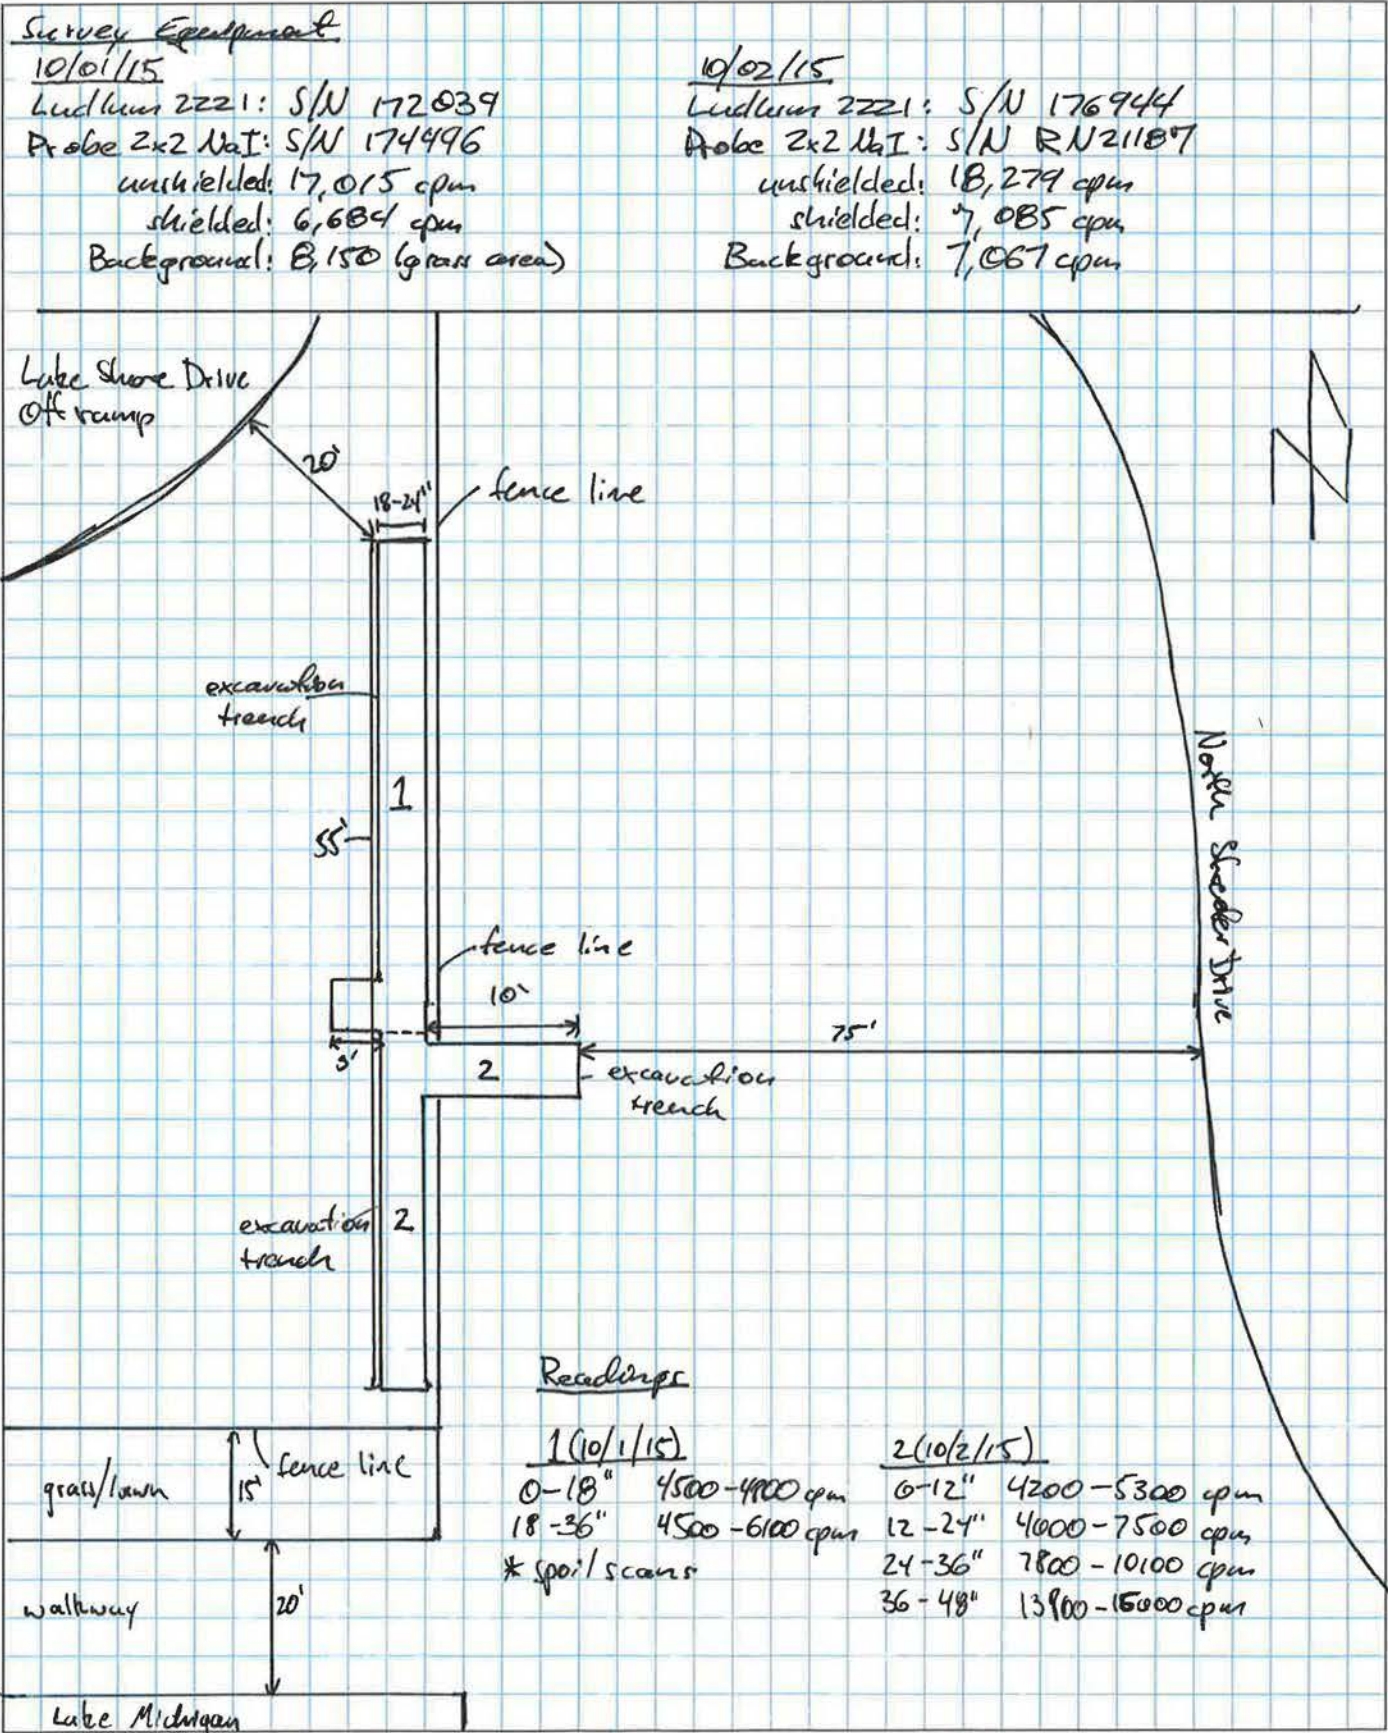 Survey Equipment
10/01/15
Ludlum 2221: S/N 172039
Probe 2x2 NaI: S/N 174496
unshielded: 17,015 cpm
shielded: 6,684 cpm
Background: 8,150 (grass area)
10/02/15
Ludlum 2221: S/N 176944
Probe 2x2 NaI: S/N RN21187
unshielded: 18,279 cpm
shielded: 7,085 cpm
Background: 7,067 cpm
Lake Shore Drive
Off ramp
20'
18-24"
fence line
N
excavation
trench
1
55'
North Streeter Drive
fence line
10'
75'
3'
2
excavation
trench
excavation
trench
2
Readings
1 (10/1/15)
0-18" 4500-4900 cpm
18-36" 4500-6100 cpm
* spoil scans
2 (10/2/15)
0-12" 4200-5300 cpm
12-24" 4000-7500 cpm
24-36" 7800-10100 cpm
36-48" 13900-15000 cpm
fence line
grass/lawn
15'
walkway
20'
Lake Michigan